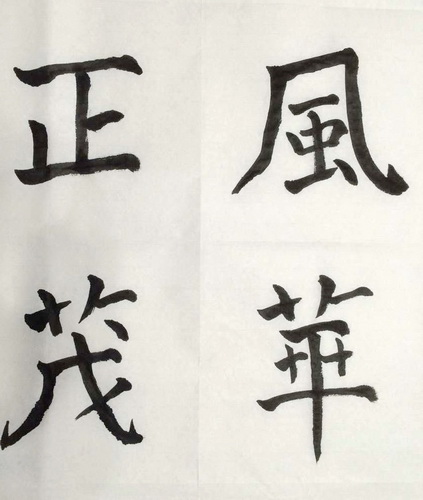 風華
正茂